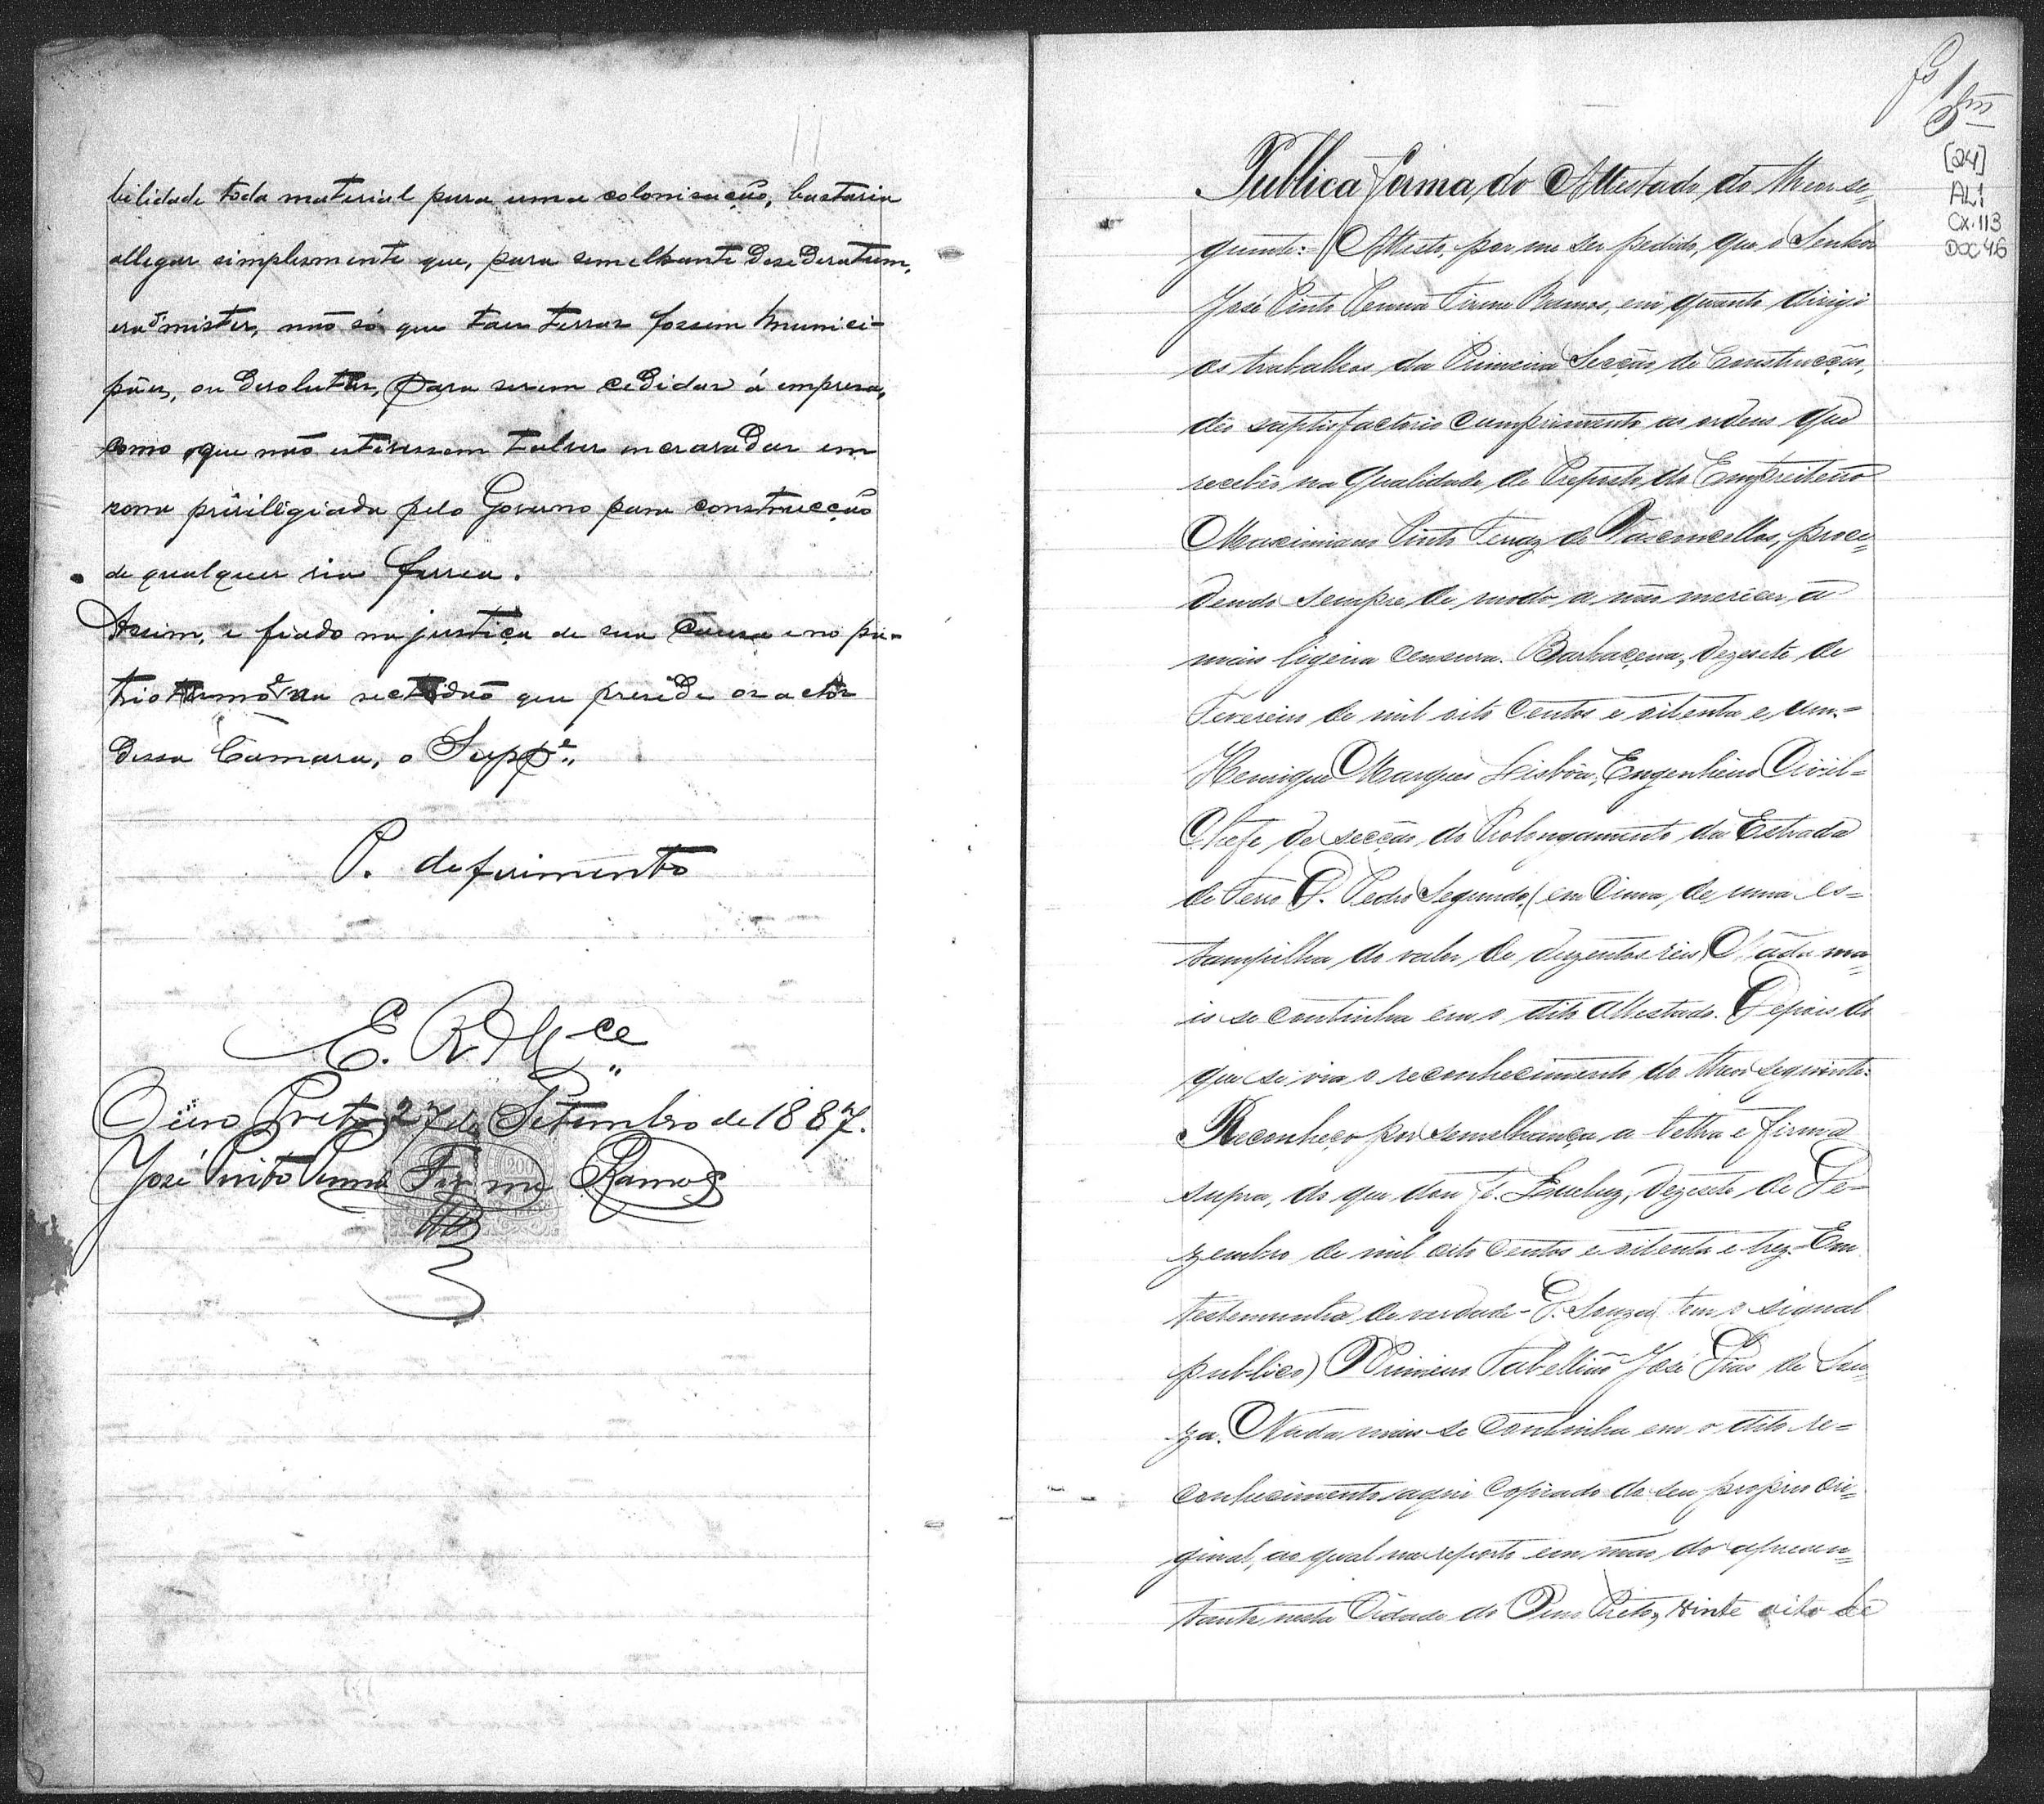 bilidade toda material para uma colonisação, bastaria
allegar simplesmente que, para semelhante desederatum,
era mister, não só que taes terras fossem munici-
päes, ou devolutas, para serem cedidas á empresa,
como que não estivessem talves encravadas em
zona priviligiada pelo Governo para construcção
de qualquer via ferrea.
Assim, e fiado na justiça de sua causa e no pa-
triotismo e na rectidão que preside os actos
dessa Camara, o Suppe.
P. deferimento
E. R. Mce
Ouro Preto 27 de Setembro de 1887.
José Pinto Penna Firme Ramos
200
fs 1
[24]
AL1
CX.113
DOC 46
Publica forma, do Attestado do theor se-
guinte: Attesto, por me ser pedido, que o Senhor
José Pinto Penna Firme Ramos, em quanto dirigi
os trabalhos da Primeira Secção de Construcção,
deo saptisfactorio cumprimento as ordens que
recebeo na qualidade de Preposto do Empreiteiro
Maximiano Pinto Ferraz de Vasconcellos, proce-
dendo sempre de modo a não merecer a
mais ligeira censura. Barbacena, dezesete de
Fevereiro de mil oito centos e oitenta e um.=
Henrique Marques Lisbôa, Engenheiro Civil=
Chefe de secção do Prolongamento da Estrada
de Ferro D. Pedro Segundo, (em cima, de uma es=
tampilha do valor de duzentos reis) Nada ma-
is se continha em o dito Attestado. Depois do
que se via o reconhecimento do theor seguinte:
Reconheço por semelhança a lettra e firma
supra, do que dou fé. Queluz, dezesete de De-
zembro de mil oito centos e oitenta e trez. Em
testemunho de verdade - D. Souza (tem o signal
publico) Primeiro Tabellião José Dias de Sou-
za. Nada mais se continha em o dito re=
conhecimento aqui copiado do seu proprio ori-
ginal, ao qual me reporto em mão do apresen-
tante nesta Cidade do Ouro Preto, vinte oito de